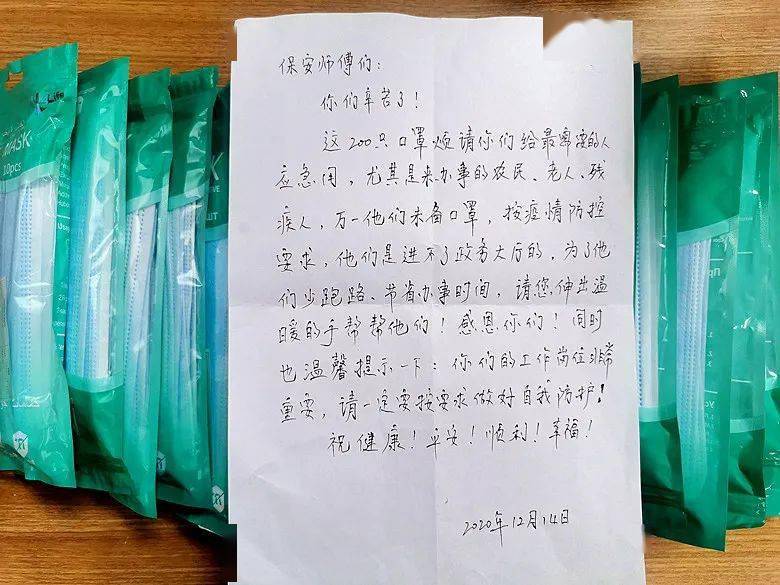 保安师傅们：
你们辛苦了！
这200只口罩烦请你们给最需要的人
应急用，尤其是来办事的农民、老人、残
疾人，万一他们未备口罩，按疫情防控
要求，他们是进不了政务大厅的，为了他
们少跑路、节省办事时间，请您伸出温
暖的手帮帮他们！感恩你们！同时
也温馨提示一下：你们的工作岗位非常
重要，请一定要按要求做好自我防护！
祝健康！平安！顺利！幸福！
2020年12月14日
Life
MASK
10pcs